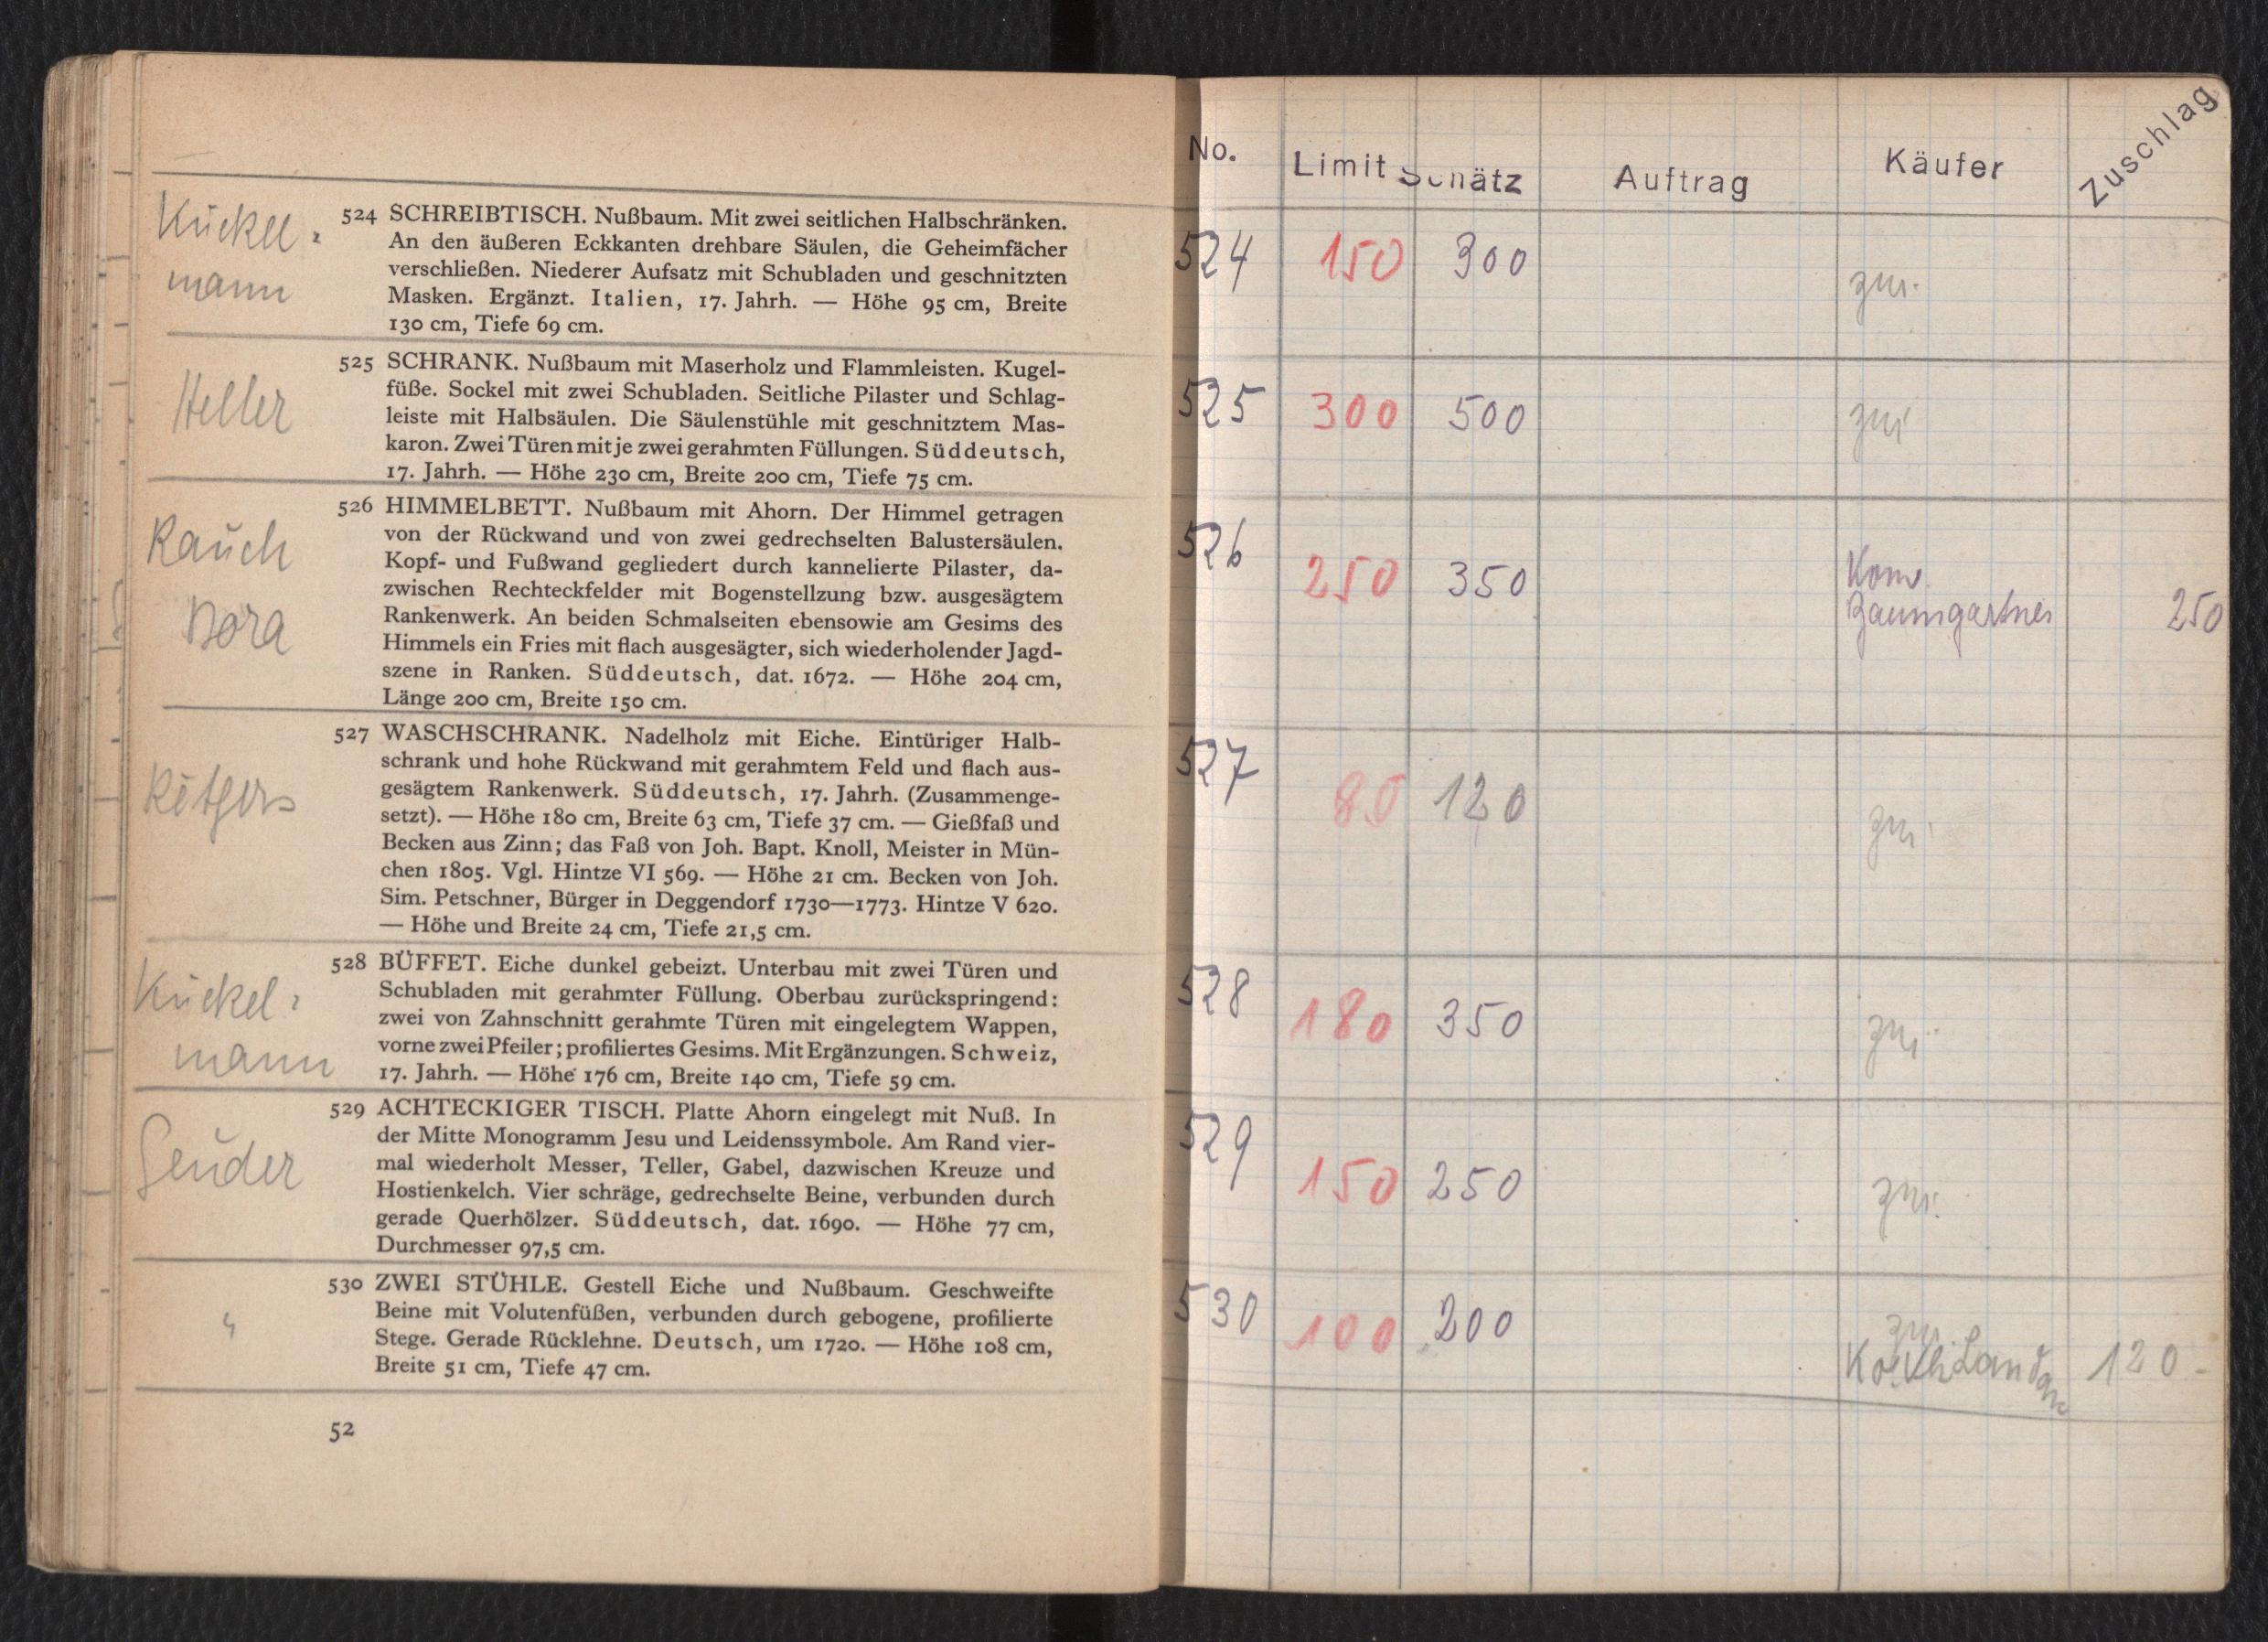 Kückel-
mann
524 SCHREIBTISCH. Nußbaum. Mit zwei seitlichen Halbschränken.
An den äußeren Eckkanten drehbare Säulen, die Geheimfächer
verschließen. Niederer Aufsatz mit Schubladen und geschnitzten
Masken. Ergänzt. Italien, 17. Jahrh. — Höhe 95 cm, Breite
130 cm, Tiefe 69 cm.
Heller
525 SCHRANK. Nußbaum mit Maserholz und Flammleisten. Kugel-
füße. Sockel mit zwei Schubladen. Seitliche Pilaster und Schlag-
leiste mit Halbsäulen. Die Säulenstühle mit geschnitztem Mas-
karon. Zwei Türen mit je zwei gerahmten Füllungen. Süddeutsch,
17. Jahrh. — Höhe 230 cm, Breite 200 cm, Tiefe 75 cm.
Rauch
Dora
526 HIMMELBETT. Nußbaum mit Ahorn. Der Himmel getragen
von der Rückwand und von zwei gedrechselten Balustersäulen.
Kopf- und Fußwand gegliedert durch kannelierte Pilaster, da-
zwischen Rechteckfelder mit Bogenstellzung bzw. ausgesägtem
Rankenwerk. An beiden Schmalseiten ebensowie am Gesims des
Himmels ein Fries mit flach ausgesägter, sich wiederholender Jagd-
szene in Ranken. Süddeutsch, dat. 1672. — Höhe 204 cm,
Länge 200 cm, Breite 150 cm.
527 WASCHSCHRANK. Nadelholz mit Eiche. Eintüriger Halb-
schrank und hohe Rückwand mit gerahmtem Feld und flach aus-
gesägtem Rankenwerk. Süddeutsch, 17. Jahrh. (Zusammenge-
setzt). — Höhe 180 cm, Breite 63 cm, Tiefe 37 cm. — Gießfaß und
Becken aus Zinn; das Faß von Joh. Bapt. Knoll, Meister in Mün-
chen 1805. Vgl. Hintze VI 569. — Höhe 21 cm. Becken von Joh.
Sim. Petschner, Bürger in Deggendorf 1730—1773. Hintze V 620.
— Höhe und Breite 24 cm, Tiefe 21,5 cm.
Kückel-
mann
528 BÜFFET. Eiche dunkel gebeizt. Unterbau mit zwei Türen und
Schubladen mit gerahmter Füllung. Oberbau zurückspringend:
zwei von Zahnschnitt gerahmte Türen mit eingelegtem Wappen,
vorne zwei Pfeiler; profiliertes Gesims. Mit Ergänzungen. Schweiz,
17. Jahrh. — Höhe 176 cm, Breite 140 cm, Tiefe 59 cm.
Geuder
529 ACHTECKIGER TISCH. Platte Ahorn eingelegt mit Nuß. In
der Mitte Monogramm Jesu und Leidenssymbole. Am Rand vier-
mal wiederholt Messer, Teller, Gabel, dazwischen Kreuze und
Hostienkelch. Vier schräge, gedrechselte Beine, verbunden durch
gerade Querhölzer. Süddeutsch, dat. 1690. — Höhe 77 cm,
Durchmesser 97,5 cm.
530 ZWEI STÜHLE. Gestell Eiche und Nußbaum. Geschweifte
Beine mit Volutenfüßen, verbunden durch gebogene, profilierte
Stege. Gerade Rücklehne. Deutsch, um 1720. — Höhe 108 cm,
Breite 51 cm, Tiefe 47 cm.
52
No. Limit Schätz Auftrag Käufer Zuschlag
524 150 300 zur.
525 300 500 zur
526 250 350 Kom.
Baumgartner 250
527 80 120 zur
528 180 350 zur
529 150 250 zur.
530 100 200 zur.
120 -